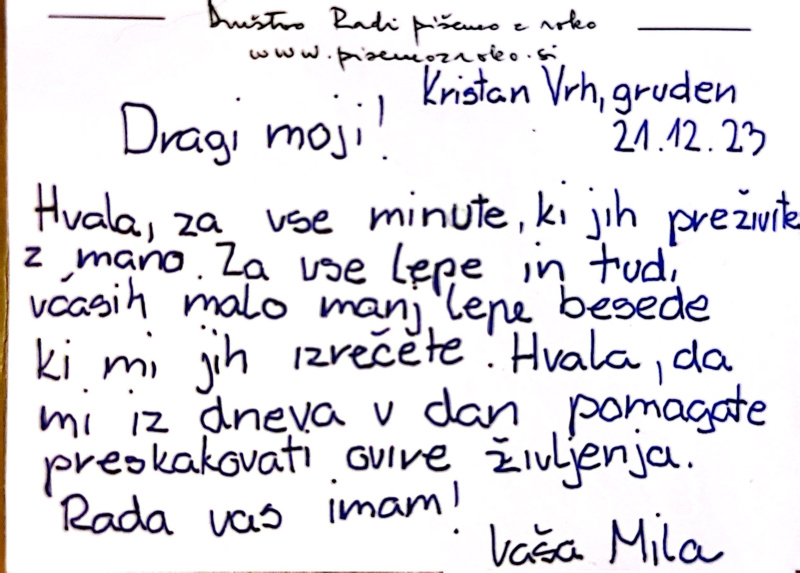 Društvo Radi pišemo z roko
www.pisemozroko.si
Kristan Vrh, gruden
21.12.23
Dragi moji!
Hvala, za vse minute, ki jih preživite
z mano. Za vse lepe in tudi
včasih malo manj lepe besede
ki mi jih izrečete. Hvala, da
mi iz dneva v dan pomagate
preskakovati ovire življenja.
Rada vas imam!
Vaša Mila